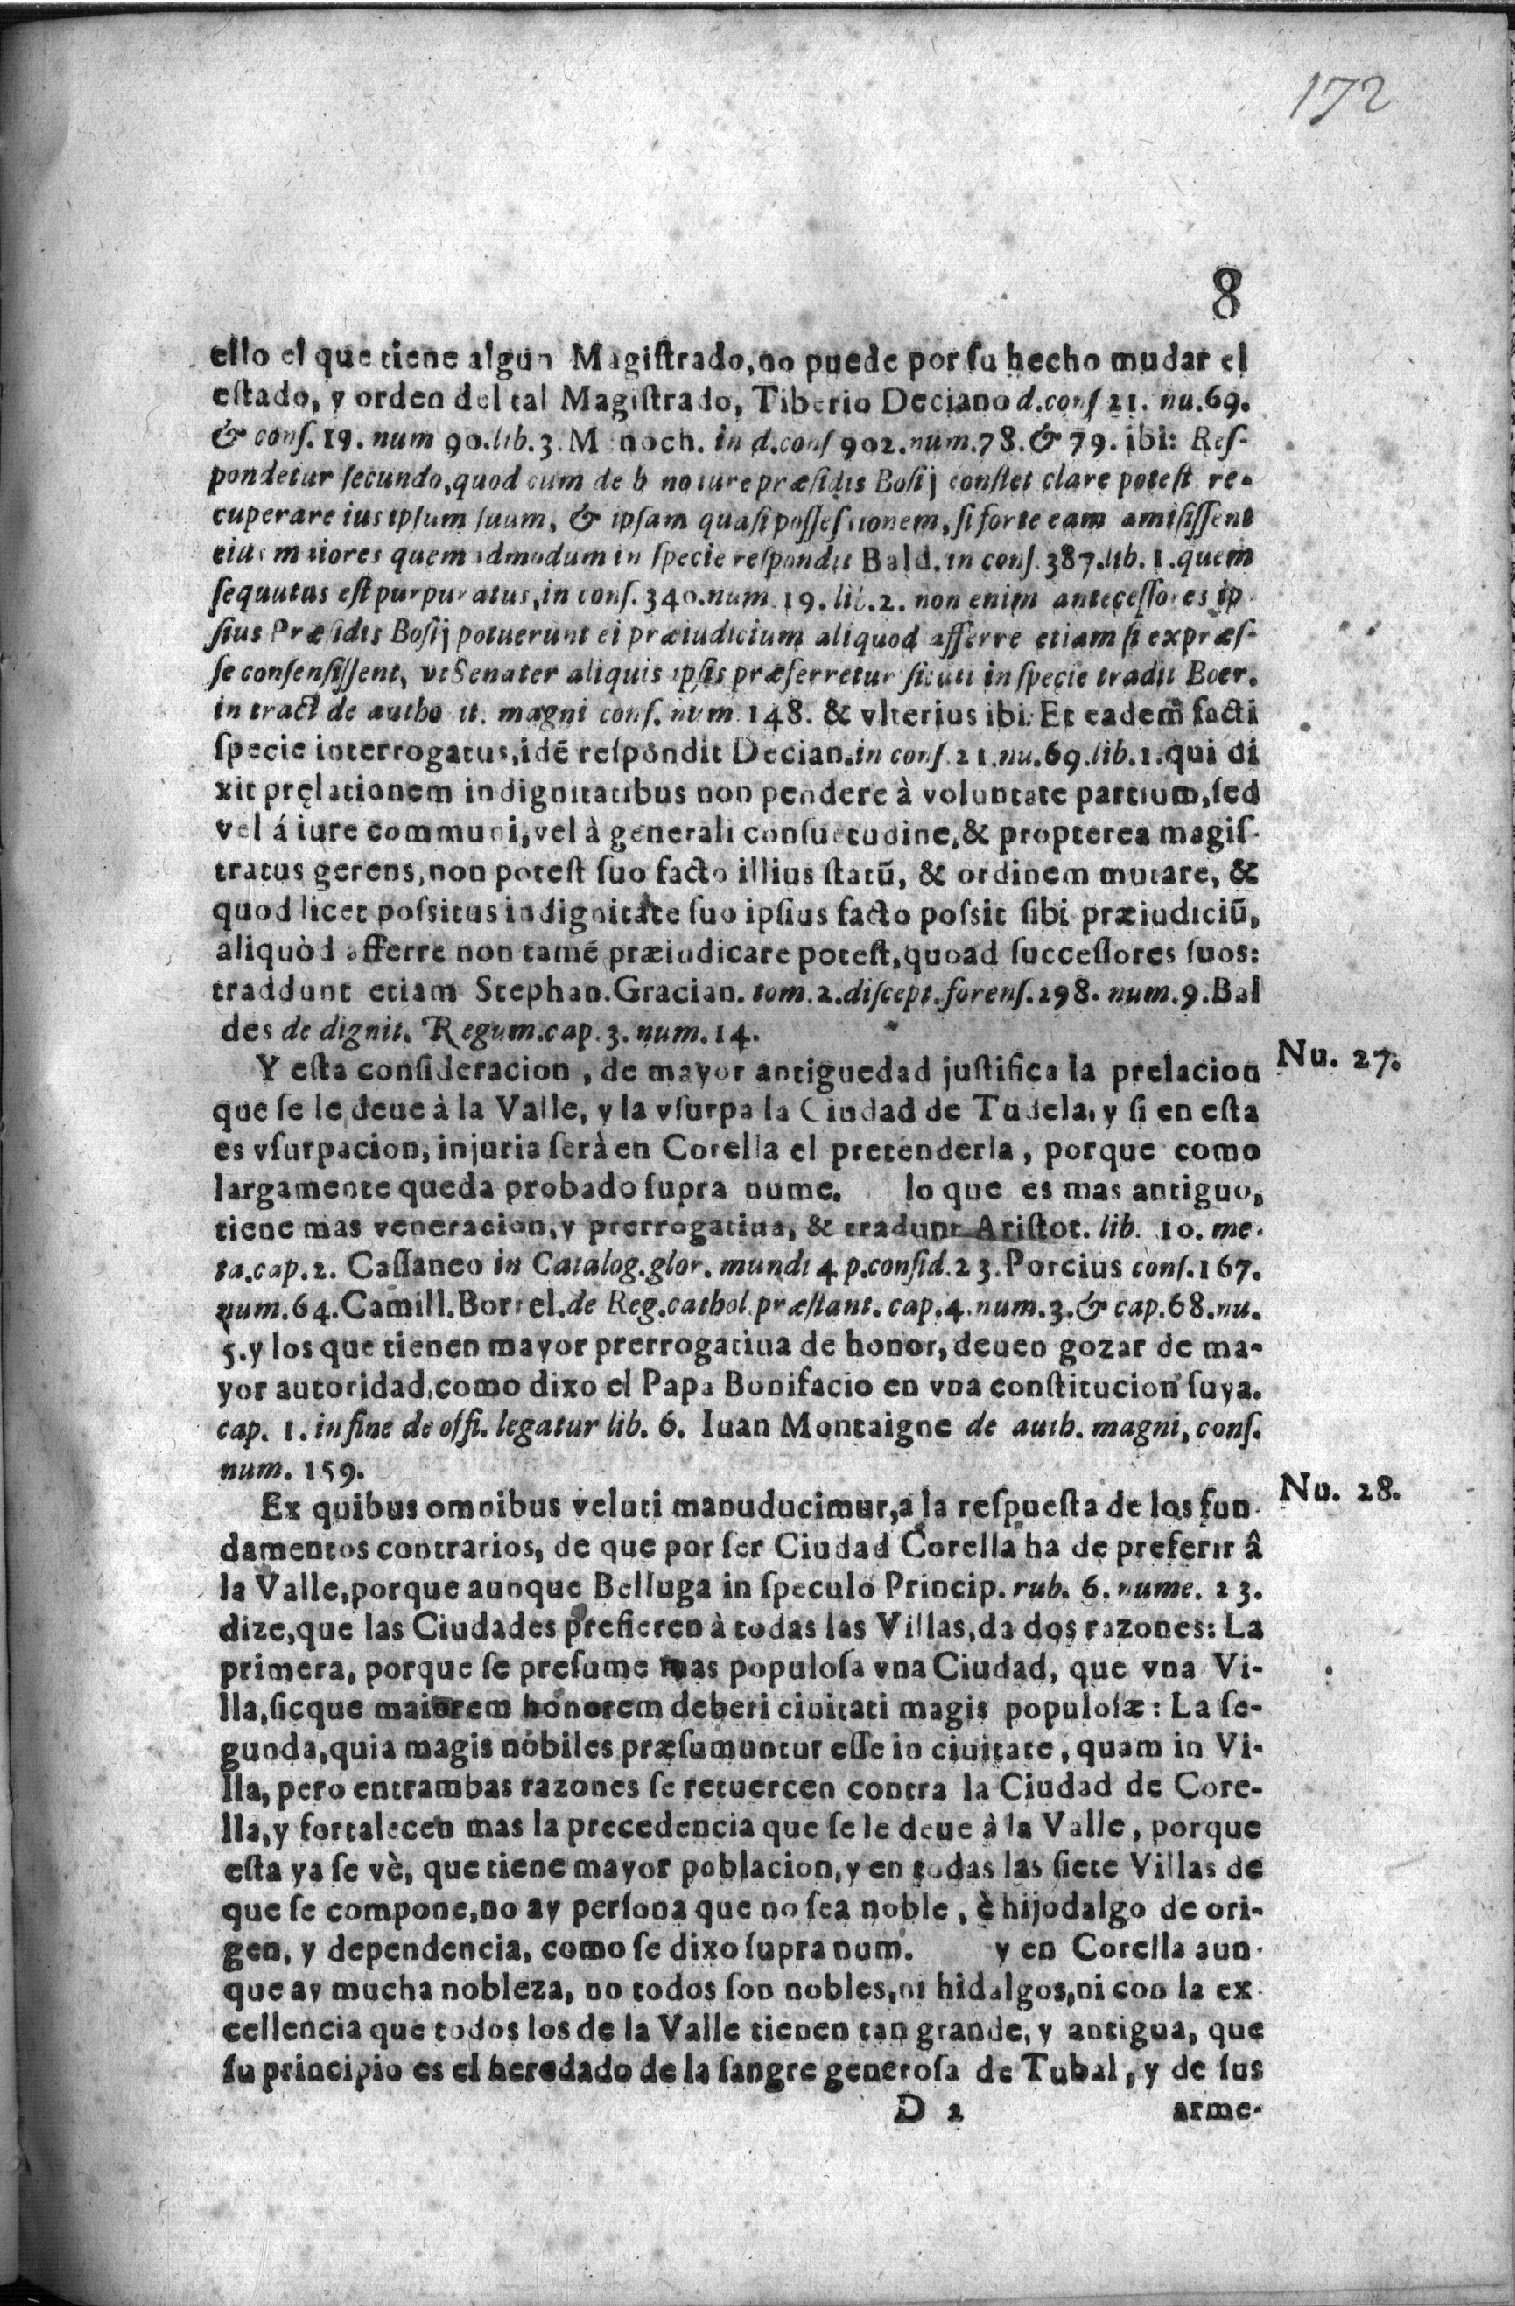 172
8
ello el que tiene algun Magiſtrado, no puede por ſu hecho mudar el
eſtado, y orden del tal Magiſtrado, Tiberio Deciano d.conſ 21. nu.69.
& conſ. 19. num 90.lib.3. M noch. in d.conſ 902.num.78.& 79. ibi: Reſ-
pondetur ſecundo, quod cum de b no iure præſidis Boſij conſtet clare poteſt re-
cuperare ius ipſum ſuum, & ipſam quaſi poſſeſsionem, ſi forte eam amiſiſſent
eius maiores quem admodum in ſpecie reſpondit Bald. in conſ. 387.lib. 1.quem
ſequutus eſt purpuratus, in conſ. 340.num. 19. lib.2. non enim anteceſſores ip
ſius Præſidis Boſij potuerunt ei præiudicium aliquod afferre etiam ſi expræſ-
ſe conſenſiſſent, vt Senater aliquis ipſis præferretur ſicuti in ſpecie tradit Boer.
in tract de autho it. magni conſ. num. 148. & vlterius ibi. Et eadem facti
ſpecie interrogatus, idē reſpondit Decian.in conſ. 21.nu.69.lib.1.qui di
xit pręlationem in dignitatibus non pendere à voluntate partium, ſed
vel á iure communi, vel à generali conſuetudine, & propterea magiſ-
tratus gerens, non poteſt ſuo facto illius ſtatū, & ordinem mutare, &
quod licet poſsitus in dignitate ſuo ipſius facto poſsit ſibi præiudiciū,
aliquòd afferre non tamē præiudicare poteſt, quoad ſucceſſores ſuos:
traddunt etiam Stephan.Gracian. tom.2.diſcept.forenſ.298. num.9.Bal
des de dignit. Regum.cap.3. num.14.
Y eſta conſideracion, de mayor antiguedad juſtifica la prelacion
Nu. 27.
que ſe le deue à la Valle, y la vſurpa la Ciudad de Tudela, y ſi en eſta
es vſurpacion, injuria ſerà en Corella el pretenderla, porque como
largamente queda probado ſupra nume. lo que es mas antiguo,
tiene mas veneracion, y prerrogatiua, & tradunt Ariſtot. lib. 10. me-
ta.cap.2. Caſſaneo in Catalog.glor. mundi 4 p.conſid.23.Porcius conſ.167.
num.64.Camill.Borrel.de Reg.cathol.præſtant.cap.4.num.3.& cap.68.nu.
5.y los que tienen mayor prerrogatiua de honor, deuen gozar de ma-
yor autoridad, como dixo el Papa Bonifacio en vna conſtitucion ſuya.
cap. 1. in fine de offi. legatur lib. 6. Iuan Montaigne de auth. magni, conſ.
num. 159.
Ex quibus omnibus veluti manuducimur, a la reſpueſta de los fun-
Nu. 28.
damentos contrarios, de que por ſer Ciudad Corella ha de preferir â
la Valle, porque aunque Belluga in ſpeculo Princip. rub. 6. nume. 23.
dize, que las Ciudades prefieren à todas las Villas, da dos razones: La
primera, porque ſe preſume mas populoſa vna Ciudad, que vna Vi-
lla, ſicque maiorem honorem deberi ciuitati magis populoſæ: La ſe-
gunda, quia magis nobiles præſumuntur eſſe in ciuitate, quam in Vi-
lla, pero entrambas razones ſe retuercen contra la Ciudad de Core-
lla, y fortalecen mas la precedencia que ſe le deue à la Valle, porque
eſta ya ſe vè, que tiene mayor poblacion, y en todas las ſiete Villas de
que ſe compone, no ay perſona que no ſea noble, è hijodalgo de ori-
gen, y dependencia, como ſe dixo ſupra num. y en Corella aun-
que ay mucha nobleza, no todos ſon nobles, ni hidalgos, ni con la ex-
cellencia que todos los de la Valle tienen tan grande, y antigua, que
ſu principio es el heredado de la ſangre generoſa de Tubal, y de ſus
D 2 arme-